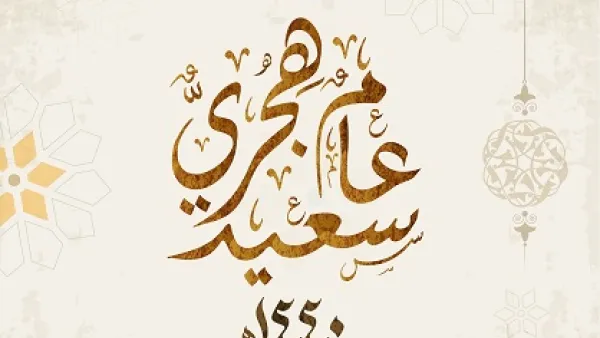 عام هجري
سعيد
١٤٤٠هـ